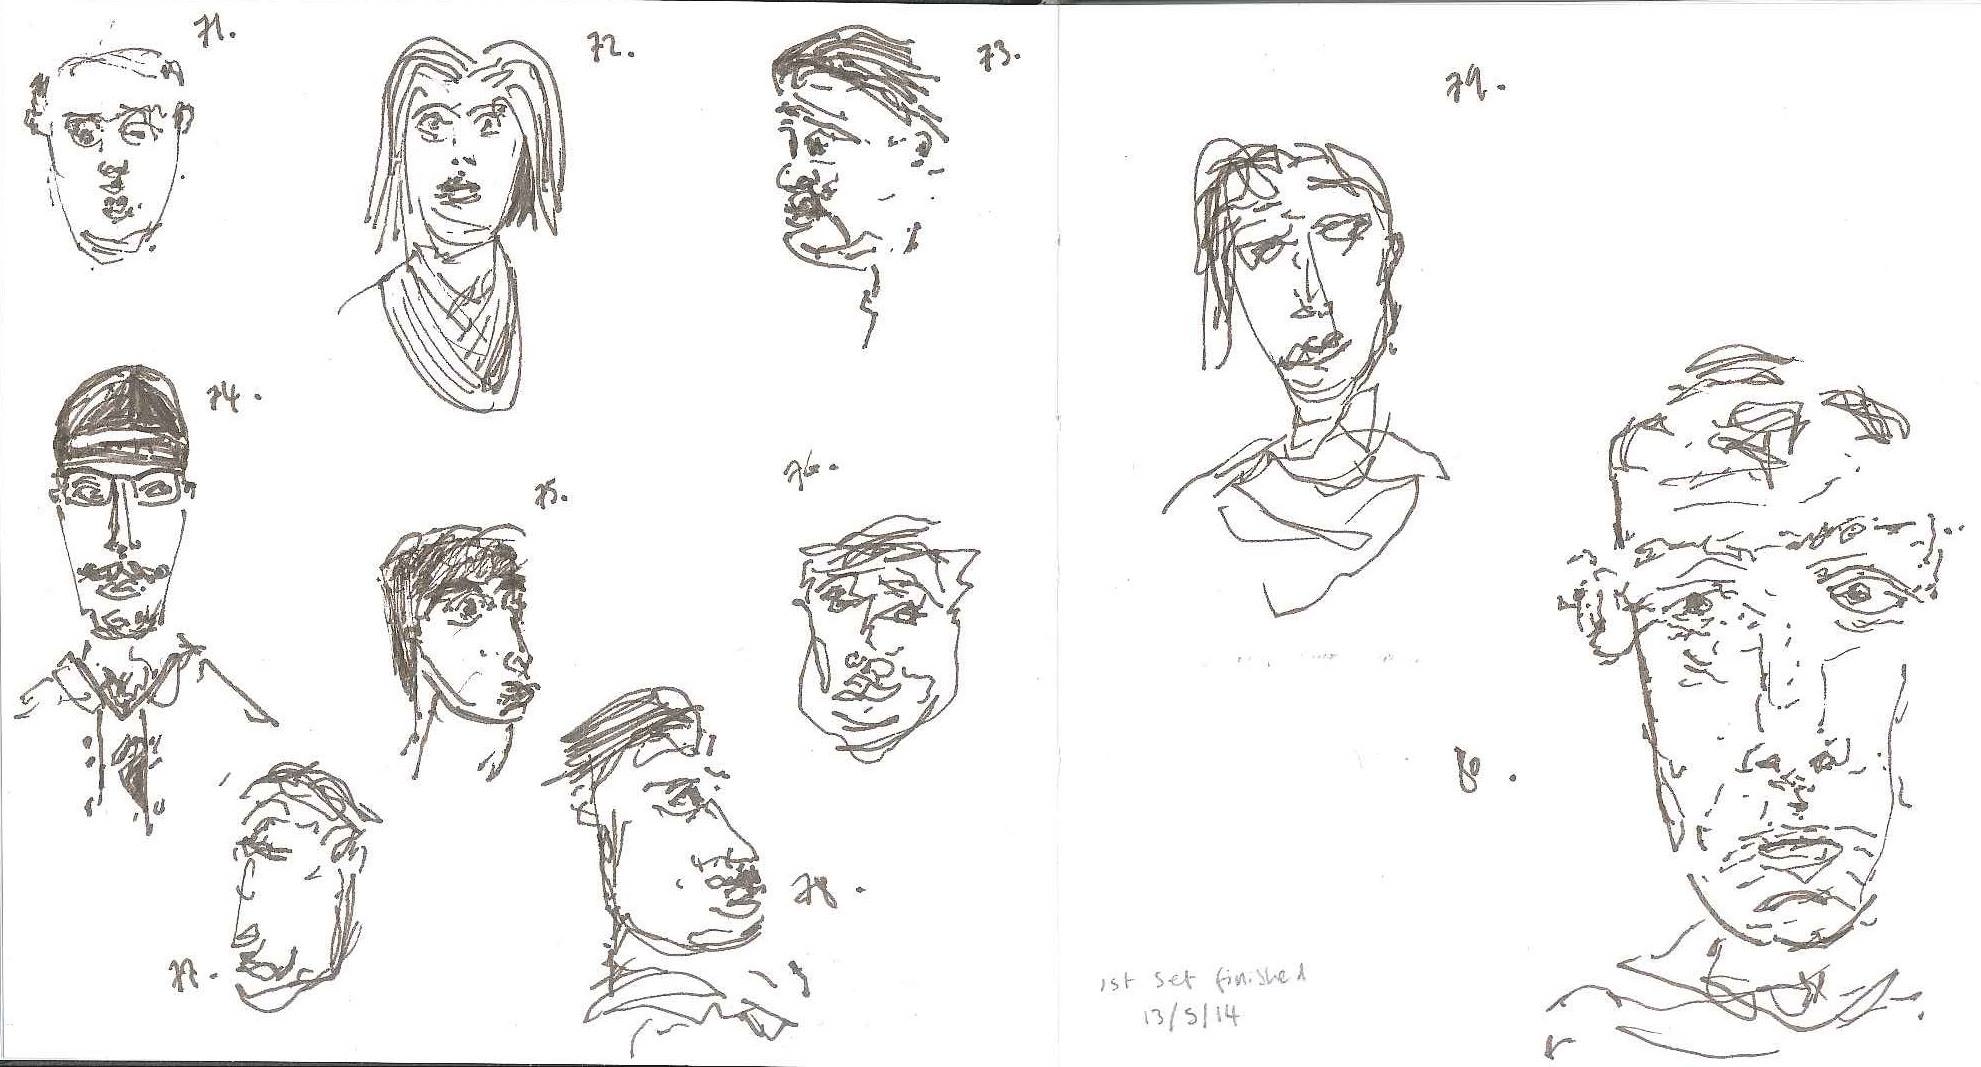 71.
72.
73.
74.
75.
76.
77.
78.
79.
80.
1st set finished
13/5/14